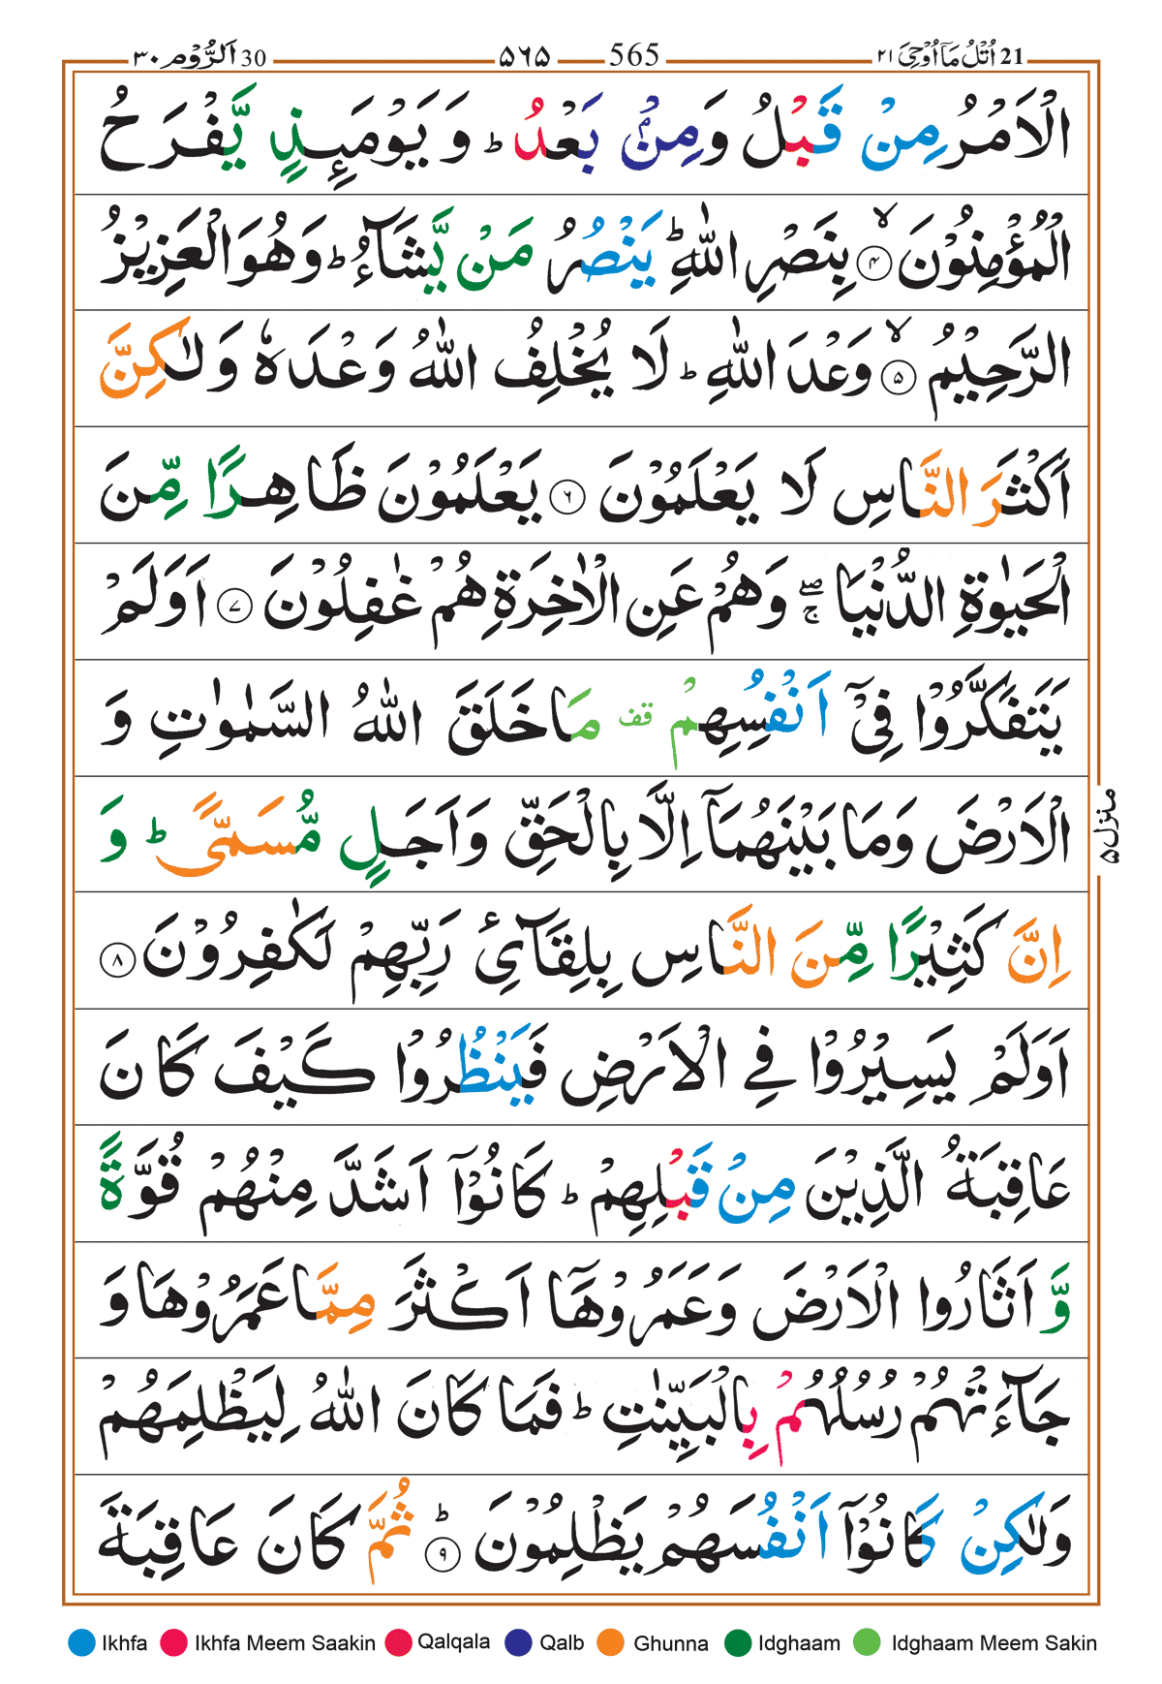 30 اَلرُّوْم ٣٠ ۵۶۵ 565 21 اُتْلُ مَاۤ اُوْحِیَ ٢١
الْاَمْرُ مِنْ قَبْلُ وَمِنْۢ بَعْدُ ؕ وَ یَوْمَىِٕذٍ یَّفْرَحُ
الْمُؤْمِنُوْنَ ۙ﴿۴﴾ بِنَصْرِ اللّٰهِ ؕ یَنْصُرُ مَنْ یَّشَآءُ ؕ وَهُوَ الْعَزِیْزُ
الرَّحِیْمُ ۙ﴿۵﴾ وَعْدَ اللّٰهِ ؕ لَا یُخْلِفُ اللّٰهُ وَعْدَهٗ وَلٰكِنَّ
اَكْثَرَ النَّاسِ لَا یَعْلَمُوْنَ ﴿۶﴾ یَعْلَمُوْنَ ظَاهِرًا مِّنَ
الْحَیٰوةِ الدُّنْیَا ۖۚ وَهُمْ عَنِ الْاٰخِرَةِ هُمْ غٰفِلُوْنَ ﴿۷﴾ اَوَلَمْ
یَتَفَكَّرُوْا فِیْۤ اَنْفُسِهِمْ ۫ قف مَا خَلَقَ اللّٰهُ السَّمٰوٰتِ وَ
الْاَرْضَ وَمَا بَیْنَهُمَاۤ اِلَّا بِالْحَقِّ وَاَجَلٍ مُّسَمًّی ؕ وَ
اِنَّ كَثِیْرًا مِّنَ النَّاسِ بِلِقَآئِ رَبِّهِمْ لَكٰفِرُوْنَ ﴿۸﴾
اَوَلَمْ یَسِیْرُوْا فِی الْاَرْضِ فَیَنْظُرُوْا كَیْفَ كَانَ
عَاقِبَةُ الَّذِیْنَ مِنْ قَبْلِهِمْ ؕ كَانُوْۤا اَشَدَّ مِنْهُمْ قُوَّةً
وَّ اَثَارُوا الْاَرْضَ وَعَمَرُوْهَاۤ اَكْثَرَ مِمَّا عَمَرُوْهَا وَ
جَآءَتْهُمْ رُسُلُهُمْ بِالْبَیِّنٰتِ ؕ فَمَا كَانَ اللّٰهُ لِیَظْلِمَهُمْ
وَلٰكِنْ كَانُوْۤا اَنْفُسَهُمْ یَظْلِمُوْنَ ؕ﴿۹﴾ ثُمَّ كَانَ عَاقِبَةَ
منزل ۵
Ikhfa Ikhfa Meem Saakin Qalqala Qalb Ghunna Idghaam Idghaam Meem Sakin